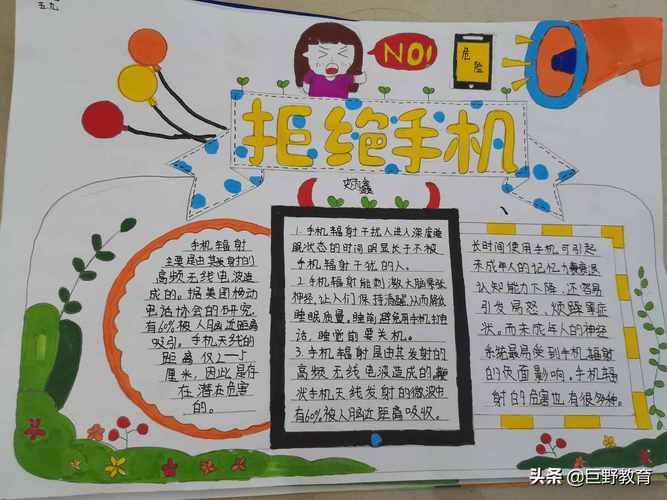 五九
NO!
危险
拒绝手机
手机辐射
主要是由其发射的
高频无线电波造
成的。据美国移动
电话协会的研究,
有60%被人脑近距离
吸引。手机天线的
距离仅2一5
厘米,因此是存
在潜在危害
的。
1.手机辐射干扰人进入深度睡
眠状态的时间明显长于不被
手机辐射干扰的人。
2.手机辐射能刺激大脑紧张
神经,让人们保持清醒,从而降低
睡眠质量。睡前避免用手机打电
话,睡觉前要关机。
3.手机辐射是由其发射的
高频无线电波造成的。
状手机天线发射的微波中
有60%被人脑近距离吸收。
长时间使用手机可引起
未成年人的记忆力衰退
认知能力下降,还容易
引发焦怒、烦躁等症
状。而未成年人的神经
系统最易受到手机辐射
的负面影响。手机辐
射的危害也有很多种。
头条 @巨野教育